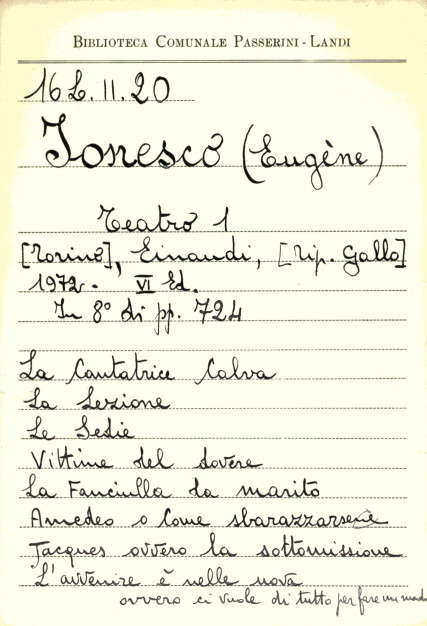 BIBLIOTECA COMUNALE PASSERINI - LANDI
16 L. II. 20
Ionesco (Eugène)
Teatro 1
[Torino], Einaudi, [Tip. Gallo]
1972. VI Ed.
In 8° di pp. 724
La Cantatrice Calva
La Lezione
Le Sedie
Vittime del dovere
La Fanciulla da marito
Amedeo o Come sbarazzarsene
Jacques ovvero la sottomissione
L'avvenire è nelle uova
ovvero ci vuole di tutto per fare un